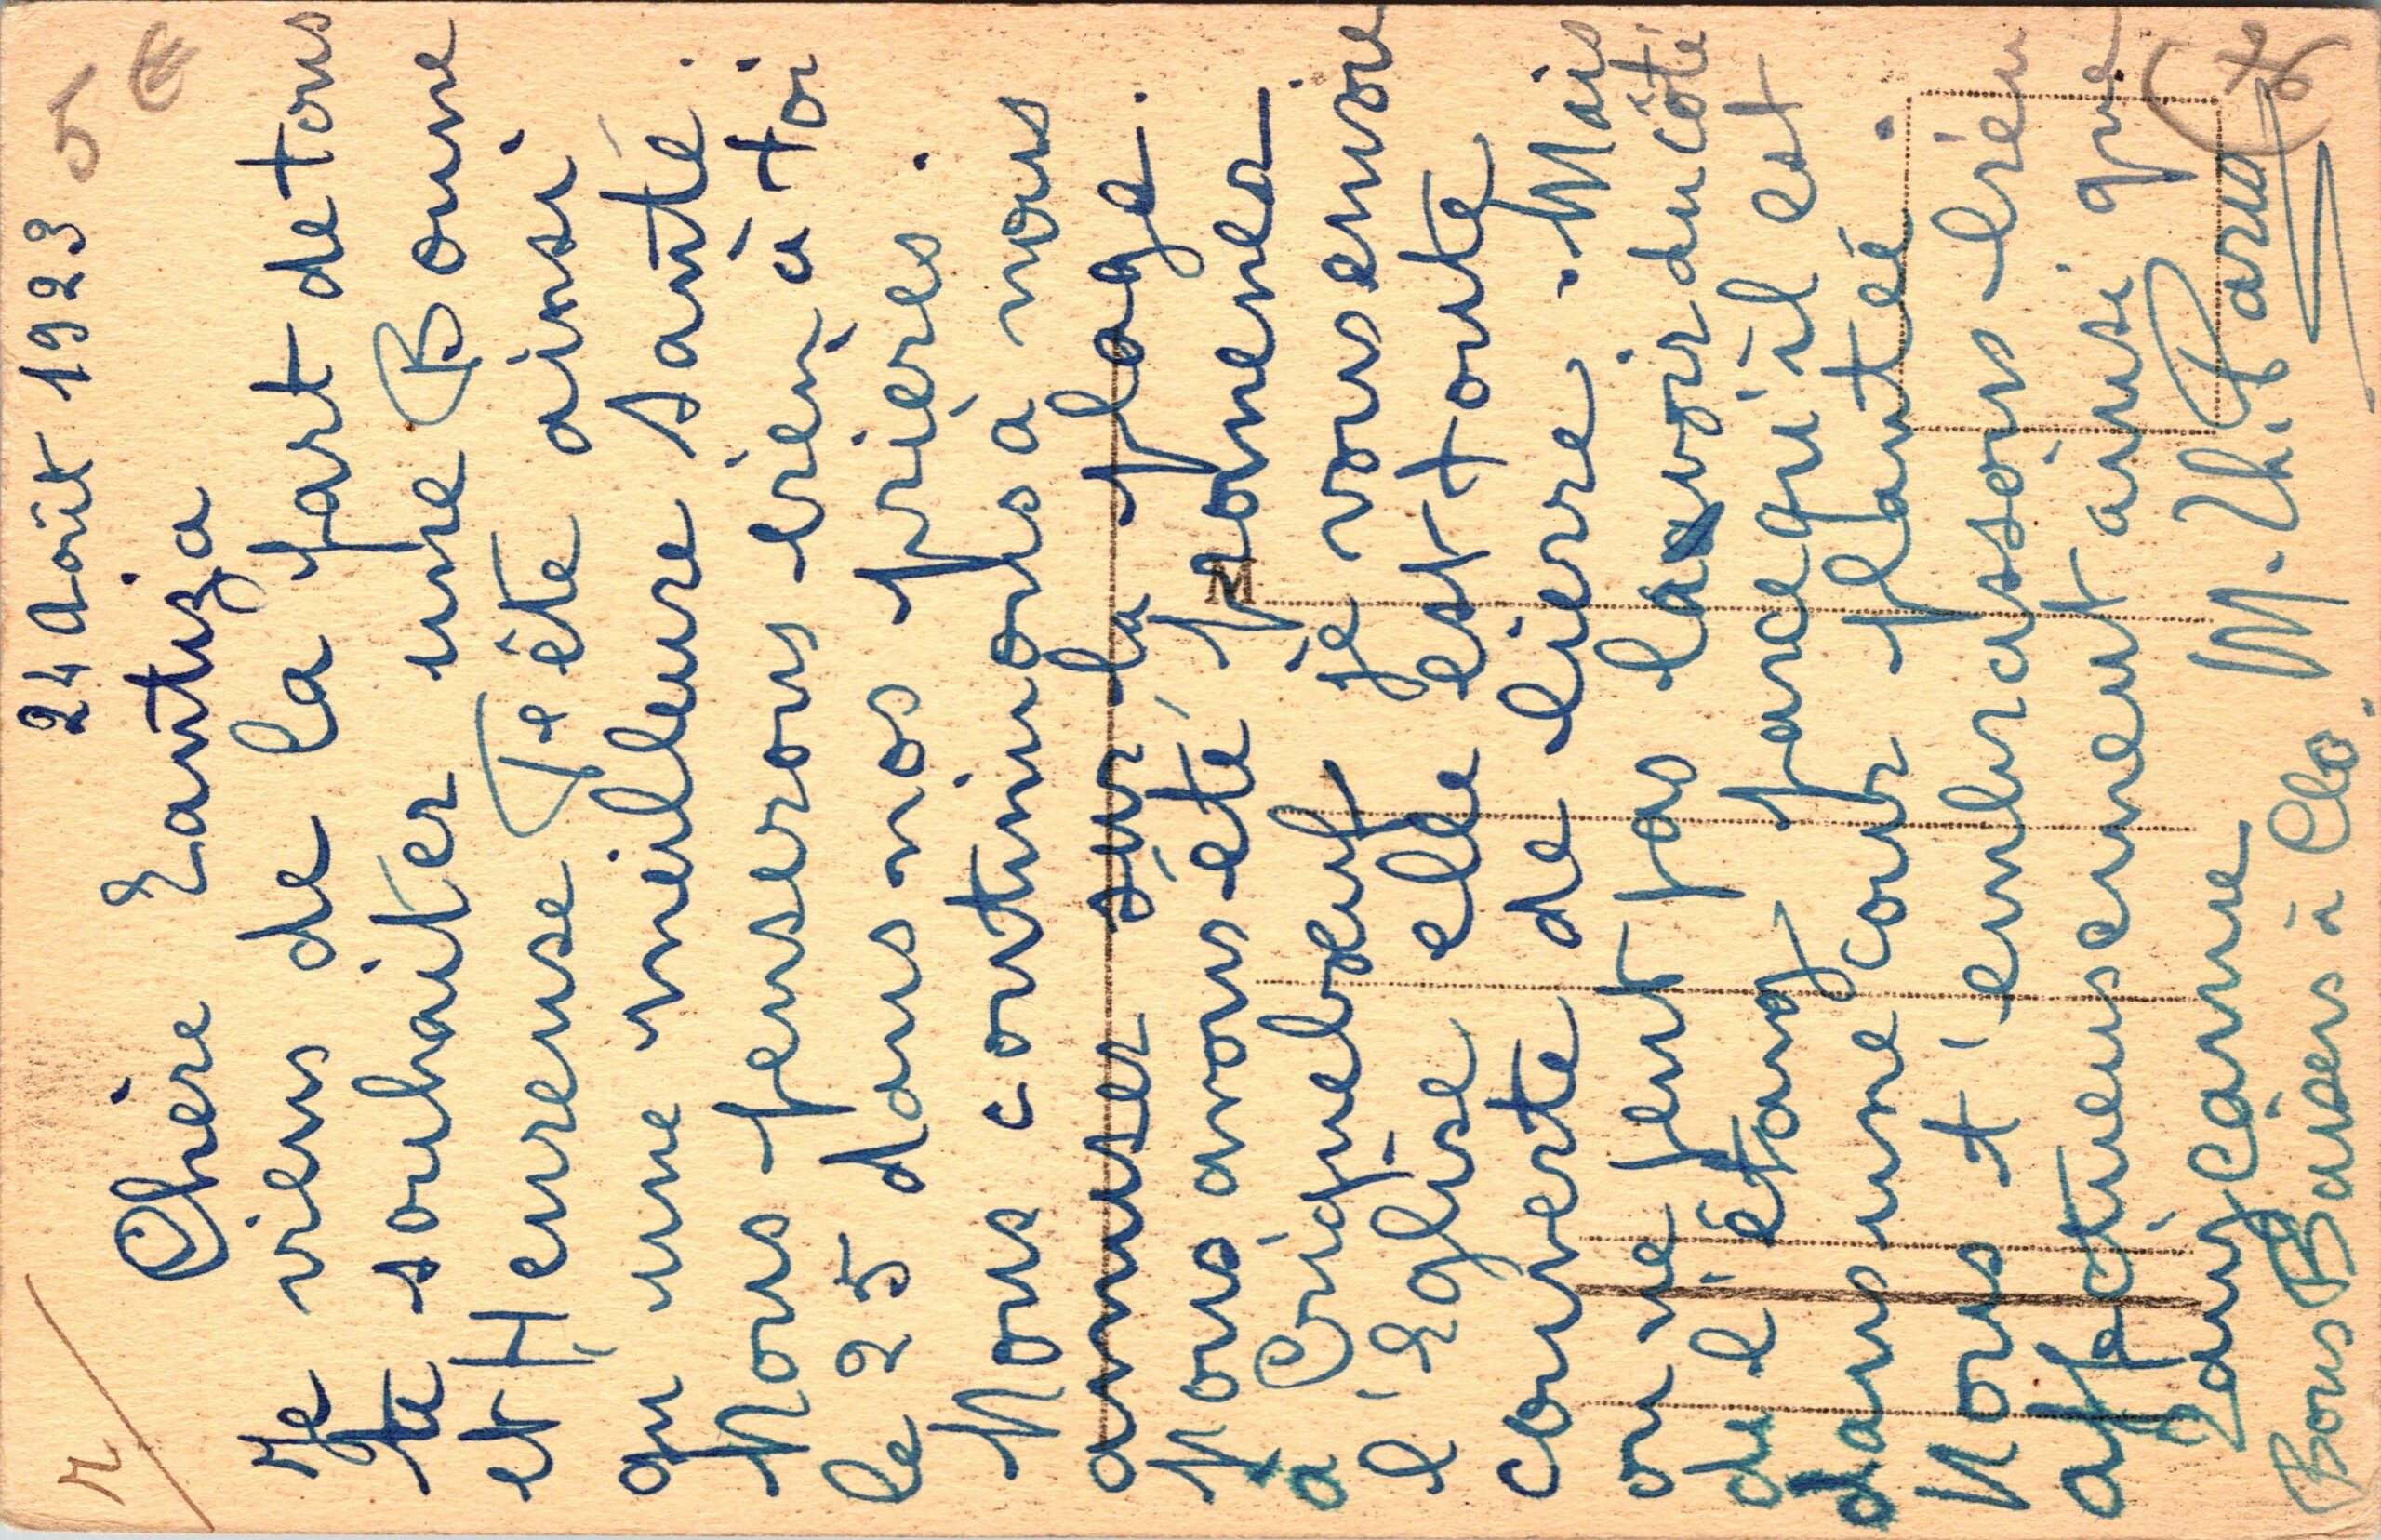 24 Août 1923
5 €
Chère Zantiza
Je viens de la part de tous
te souhaiter une Bonne
et Heureuse Fête ainsi
qu'une meilleure santé.
Nous penserons bien à toi
le 25 dans nos prières.
Nous continuons à nous
amuser sur la plage.
Nous avons été promener
à Criquebeuf je vous envoie
l'Eglise elle est toute
couverte de lierre. Mais
on ne peut pas la voir du côté
de l'étang parce qu'il est
dans une cour plantée.
Nous t'embrassons bien
affectueusement ainsi que
Bons Baisers à Clo.
M